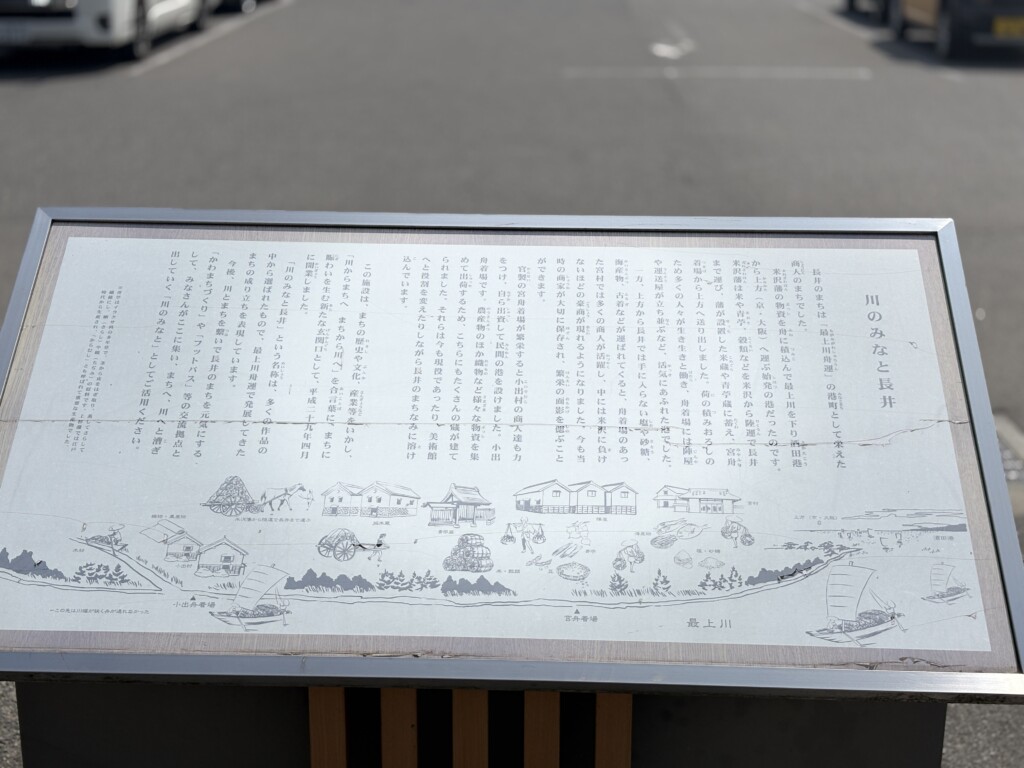 川のみなと長井
長井のまちは「最上川舟運」の港町として栄えた
商人のまちでした。
米沢藩の物資を舟に積込んで最上川を下り酒田港
から上方（京・大阪）へ運ぶ始発の港だったのです。
米沢藩は米や青苧、穀類などを米沢から陸運で長井
まで運び、藩が設置した米蔵や青苧蔵に蓄え、宮舟
着場から上方へ送り出しました。荷の積みおろしの
ため多くの人々が生き生きと働き、舟着場には陣屋
や運送屋が立ち並ぶなど、活気にあふれた港でした。
一方、上方から長井では手に入らない塩や砂糖、
海産物、古着などが運ばれてくると、舟着場のあっ
た宮村では多くの商人が活躍し、中には米沢に負け
ないほどの豪商が現れるようになりました。今も当
時の商家が大切に保存され、繁栄の面影を偲ぶこと
ができます。
官製の宮舟着場が繁栄すると小出村の商人達も力
をつけ、自ら出資して民間の港を設けました。小出
舟着場です。農産物のほか織物など様々な物資を集
めて出荷するため、こちらにもたくさんの蔵が建て
られました。それらは今も現役であったり、美術館
へと役割を変えたりしながら長井のまちなみに溶け
込んでいます。
この施設は、まちの歴史や文化、産業等をいかし、
「川からまちへ、まちから川へ」を合言葉に、まちに
賑わいを生む新たな玄関口として、平成二十九年四月
に開業しました。
「川のみなと長井」という名称は、多くの作品の
中から選ばれたもので、最上川舟運で発展してきた
まちの成り立ちを表現しています。
今後、川とまちを繋いで長井のまちを元気にする
「かわまちづくり」や「フットパス」等の交流拠点と
して、みなさんがここに集い、まちへ、川へと漕ぎ
出していく「川のみなと」としてご活用ください。
宮村
上方（京・大阪）
酒田港
米沢藩から陸運で長井まで運ぶ
青苧蔵
陣屋
青苧
海産物
塩・砂糖
米・穀類
小出村
小出舟着場
宮舟着場
最上川